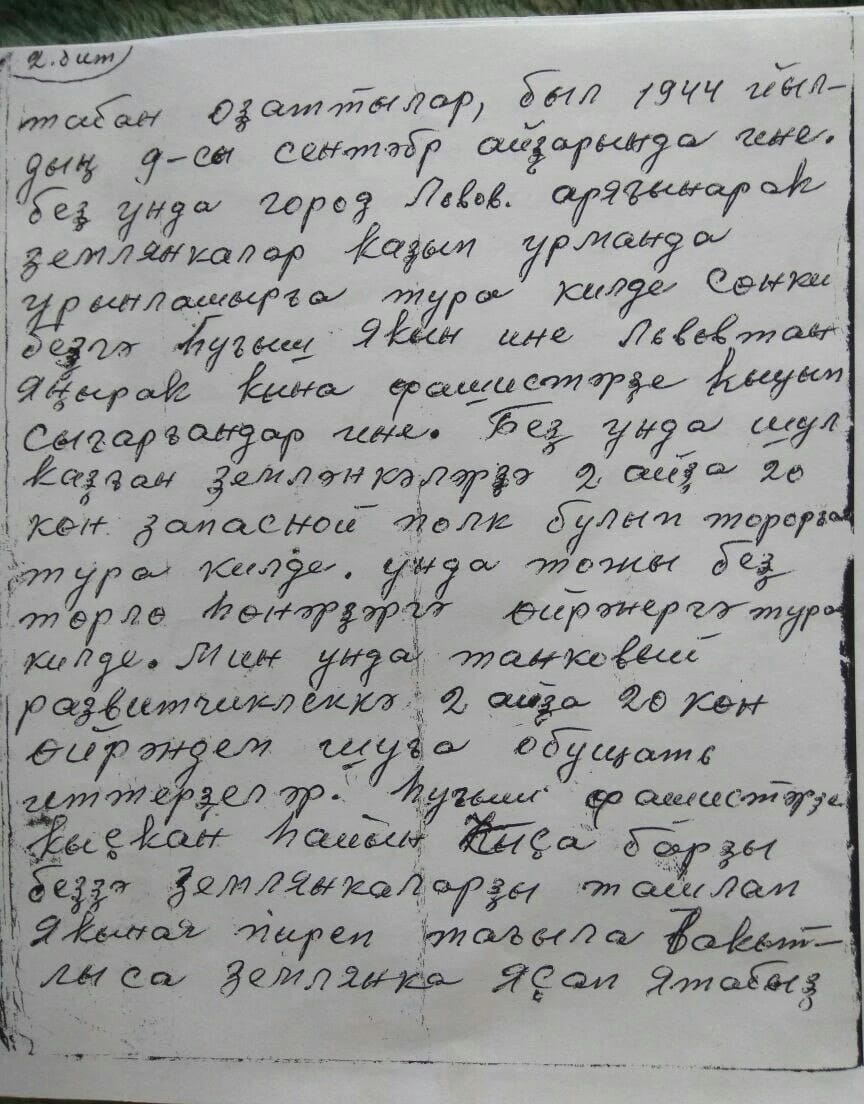 2.бит
табан оҙаттылар, был 1944 йыл-
дың 9-сы сентәбр айҙарында ине.
беҙ унда город Львов. аряғынарак
ҙемлянкалар каҙып урманда
урынлашырға тура килде сөнки
беҙгә һуғыш якын ине Львовтан
яңырак кына фашистәрҙе кыуып
сығарғандар ине. Беҙ унда шул
каҙған ҙемләнкәләрҙә 2 айҙа 20
көн запасной полк булып торорға
тура килде. унда тожы беҙ
төрлө һөнәрҙәргә өйрәнергә тура
килде. Мин унда танковый
развитчиклеккә 2 айҙа 20 көн
өйрәндем шуға обущать
иттерҙеләр. һуғыш фашистәрҙе
кыҫкан һайын кыҫа барҙы
беҙҙә ҙемлянкаларҙы ташлап
якыная пиреп тағыла вакыт-
лыса ҙемлянка яҫап ятабыҙ